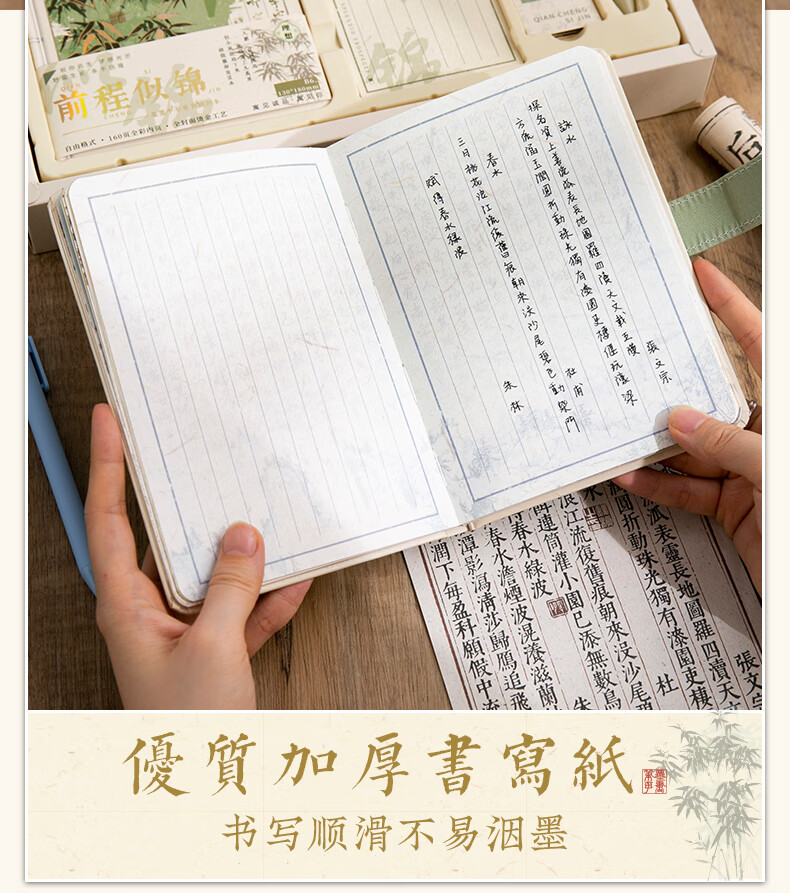 QIAN-CHENG
SI JIN
理想
前程似锦
B6
130*180mm
自由格式·160页全彩内页·全封面烫金工艺
锦
后
詠水 張文宗
探名資上善流派表靈長地圖羅四瀆天文載五潢
方流涵玉潤圓折動珠光獨有漆園吏棲偃玩濠梁
春水 杜甫
三月桃花浪江流復舊痕朝來沒沙尾碧色動柴門
賦得春水綠波 朱林
張文宗
派表靈長地圖羅四瀆天文
潤圓折動珠光獨有漆園吏棲
杜
浪江流復舊痕朝來沒沙尾
連筒灌小園已添無數鳥
得春水綠波 朱
春水澹煙波滉瀁滋蘭
潭影瀉清莎歸鴈追飛
潤下每盈科願假中流
優質加厚書寫紙
书写顺滑不易洇墨